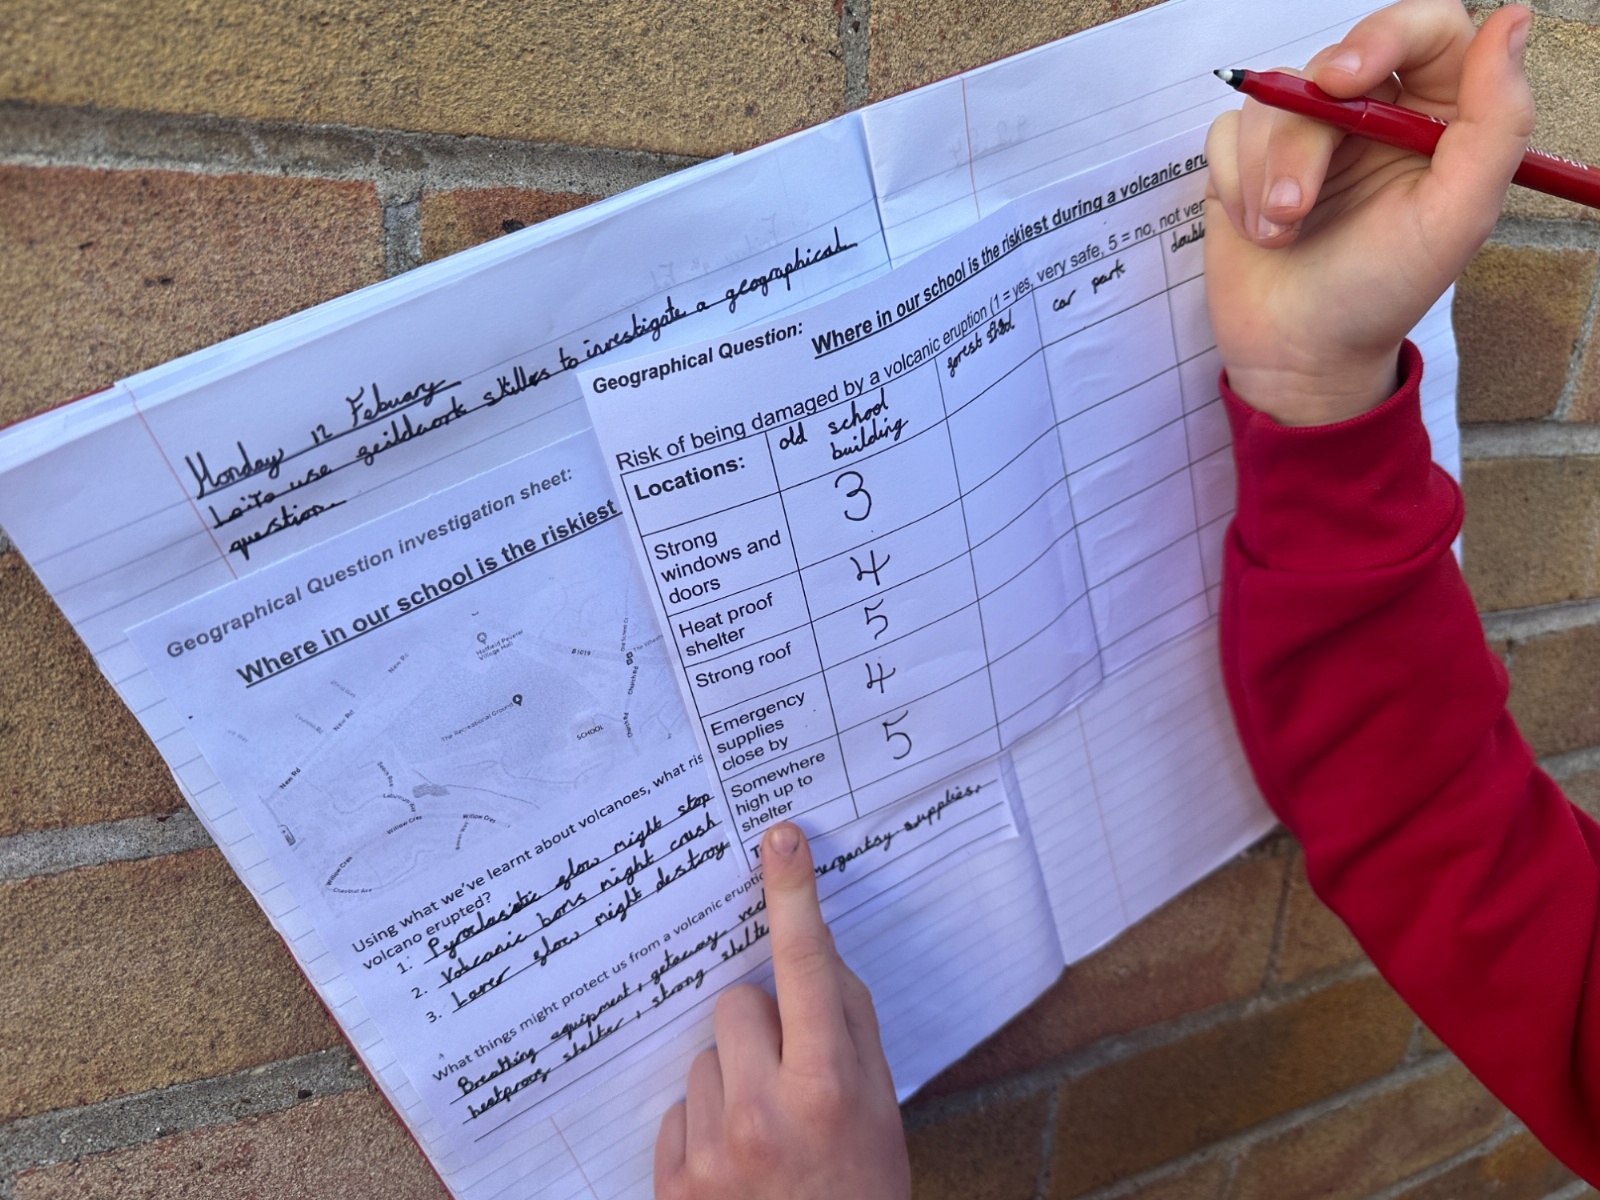 Monday 12 Febuary
Lo: To use feildwork skillas to investigate a geographical
question.
Geographical Question investigation sheet:
Where in our school is the riskiest
New Rd
Hatfield Peverel
Village Hall
B1019
The Recreational Ground
SCHOOL
New Rd
New Rd
Laburnum Av
Willow Cres
Willow Cres
Willow Cres
Chestnut Ave
Church Rd
Using what we've learnt about volcanoes, what ris
volcano erupted?
1. Pyroclastic flow might stop
2. Volcanic boms might crush
3. Laver flow might destroy
What things might protect us from a volcanic eruptio
Breathing equipment, getaway emergantsy supplies.
heatproof shelter, strong shelte
Geographical Question:
Where in our school is the riskiest during a volcanic eru
Risk of being damaged by a volcanic eruption (1 = yes, very safe, 5 = no, not ver
Locations:
old school
building
forest shed
car park
double
Strong
windows and
doors
3
Heat proof
shelter
4
Strong roof
5
Emergency
supplies
close by
4
Somewhere
high up to
shelter
5
T